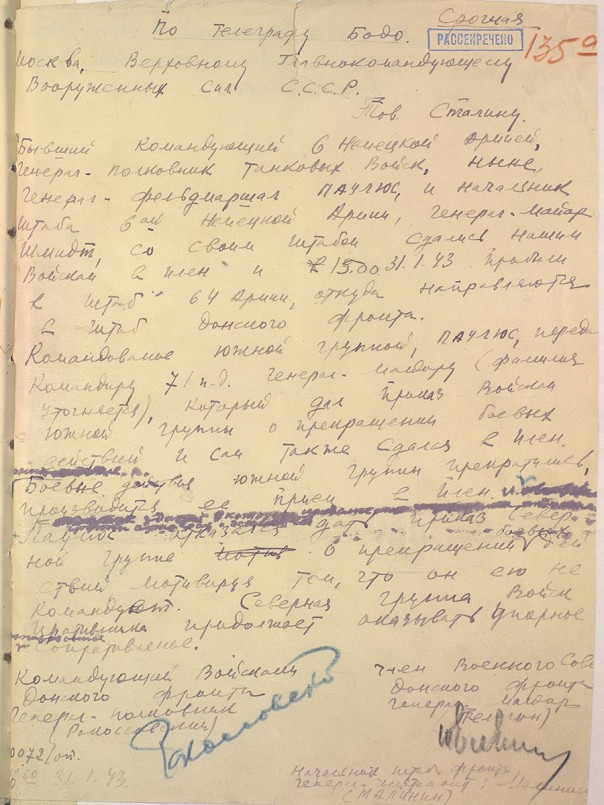 Срочная
По телеграфу Бодо.
РАССЕКРЕЧЕНО
135
Москва, Верховному Главнокомандующему
Вооруженных Сил С.С.С.Р.
Тов. Сталину.
Бывший Командующий 6 Немецкой Армией,
Генерал-полковник Танковых Войск, ныне,
Генерал-фельдмаршал ПАУЛЮС, и начальник
штаба 6ой Немецкой Армии, генерал-майор
Шмидт, со своим штабом сдались нашим
Войскам в плен и к 15.00 31.1.43 прибыли
в штаб 64 Армии, откуда направляются
в штаб Донского фронта.
Командование южной группой, ПАУЛЮС, переда
Командиру 71 п.д. генерал-майору (фамилия
уточняется), который дал приказ Войскам
южной группы о прекращении боевых
действий и сам также сдался в плен.
Боевые действия южной группы прекратились,
производится ее прием в плен.
Паулюс отказался дать приказ Север-
ной группе о прекращении боевых дей
ствий мотивируя тем, что он ею не
командует. Северная группа Войск
противника продолжает оказывать упорное
сопротивление.
Командующий Войсками
Донского фронта
Генерал-полковник
(Рокоссовский)
Рокоссовский
Член Военного Сове
Донского фронта
генерал-майор
(Телегин)
0072/оп.
31.1.43
Начальник штаба фронта
генерал-лейтенант: Малинин
(МАЛИНИН)